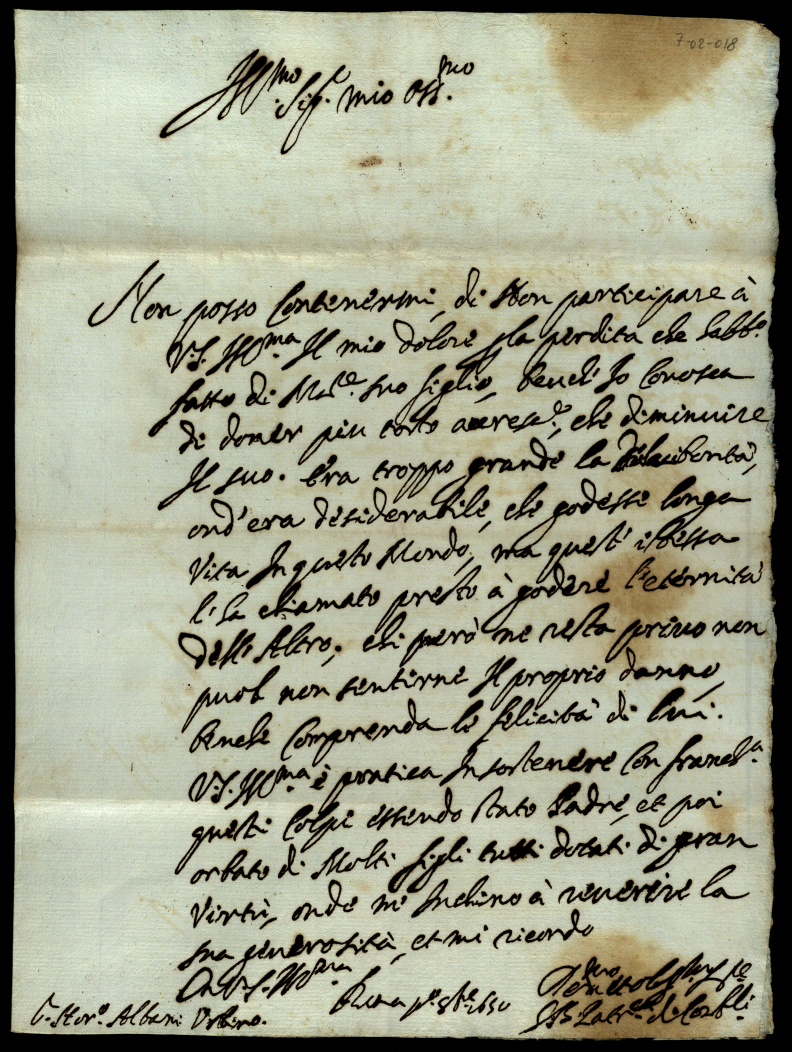 7-02-018
Ill.mo Sig.r mio Oss.mo
Non posso Contenermi, di Non participare à
V.S. Ill.ma Il mio dolore p la perdita che habb.o
fatto di suo figlio, benche Io Conosca
di dover piu tosto accresc.e, che diminuire
Il suo. Era troppo grande la bontà,
ond'era desiderabile, che godesse longa
Vita In questo Mondo, ma quest'istessa
l'ha chiamato presto à godere l'eternità
dell'Altro; chi però ne resta privo non
puol non sentirne Il proprio danno,
benche Comprenda le felicità di lui.
V.S. Ill.ma è pratica In sostenere Con franch.a
questi Colpi essendo stato Padre, et poi
orbato di Molti figli tutti dotati di gran
Virtù, onde m'Inchino à reverire la
sua generosità, et mi ricordo
Di V.S. Ill.ma
Roma p.o 8bre 1650
S. Hor.o Albani Urbino.